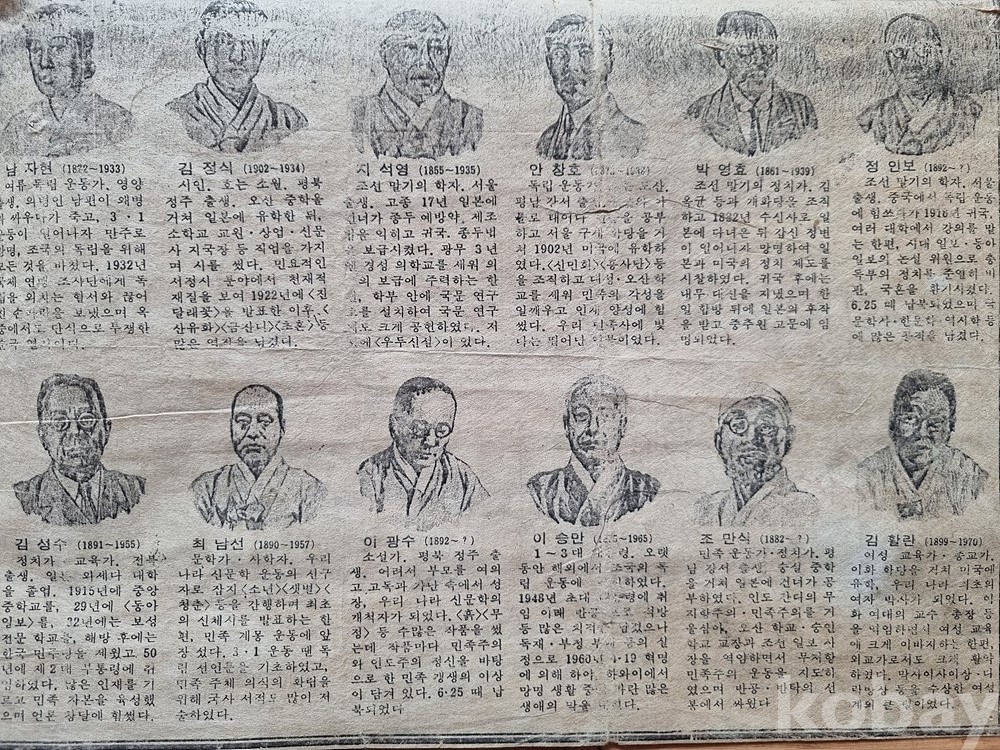 남 자현 (1872~1933)
여류 독립 운동가. 영양
출생. 의병인 남편이 왜병
과 싸우다가 죽고, 3·1
운동이 일어나자 만주로
망명, 조국의 독립을 위해
모든 것을 바쳤다. 1932년
국제 연맹 조사단에게 독
립을 외치는 혈서와 끊어
진 손가락을 보냈으며 옥
중에서도 단식으로 투쟁한
김 정식 (1902~1934)
시인. 호는 소월. 평북
정주 출생. 오산 중학을
거쳐 일본에 유학한 뒤,
소학교 교원·상업·신문
사 지국장 등 직업을 가지
며 시를 썼다. 민요적인
서정시 분야에서 천재적
재질을 보여 1922년에 <진
달래꽃>을 발표한 이후, <
산유화><금잔디><초혼>등
많은 역작을 남겼다.
지 석영 (1855~1935)
조선 말기의 학자. 서울
출생. 고종 17년 일본에
건너가 종두 예방약, 제조
법을 익히고 귀국. 종두법
을 보급시켰다. 광무 3년
엔 경성 의학교를 세워 의
의 보급에 주력하는 한
편, 학부 안에 국문 연구
소를 설치하여 국문 연구
에도 크게 공헌하였다. 저
서에 <우두신설>이 있다.
안 창호
독립 운동가 도산.
평남 강서 출생.
로 태어나 을 공부
하고 서울 구세 학당을 거
쳐 1902년 미국에 유학하
였다. <신민회><흥사단>등
을 조직하고 대성·오산학
교를 세워 민족의 각성을
일깨우고 인재 양성에 힘
썼다. 우리 민족사에 빛
나는 뛰어난 인물이었다.
박 영효 (1861~1939)
조선 말기의 정치가. 김
옥균 등과 개화당을 조직
하고 1882년 수신사로 일
본에 다녀온 뒤 갑신 정변
이 일어나자 망명하여 일
본과 미국의 정치 제도를
시찰하였다. 귀국 후에는
내무 대신을 지냈으며 한
일 합방 뒤에 일본의 후작
을 받고 중추원 고문에 임
명되었다.
정 인보 (1892~?)
조선 말기의 학자. 서울
출생, 중국에서 독립 운동
에 힘쓰다가 1918년 귀국,
여러 대학에서 강의를 맡
는 한편, 시대 일보·동아
일보의 논설 위원으로 총
독부의 정치를 준열히 비
판, 국혼을 환기시켰다.
6.25 때 납북되었으며 국
문학사·한문학·역사학 등
에 많은 공적을 남겼다.
김 성수 (1891~1955)
정치가·교육가. 전북
출생. 일본 와세다 대학
을 졸업, 1915년에 중앙
중학교를, 29년에 <동아
일보>를, 32년에는 보성
전문 학교를, 해방 후에는
한국 민주당을 세웠고 50
년에 제2대 부통령에 취
임하였다. 많은 인재를 기
르고 민족 자본을 육성했
으며 언론 창달에 힘썼다.
최 남선 (1890~1957)
문학가·사학자. 우리
나라 신문학 운동의 선구
자로 잡지 <소년><샛별><
청춘>등을 간행하며 최초
의 신체시를 발표하는 한
편, 민족 계몽 운동에 앞
장 섰다. 3·1 운동 땐 독
립 선언문을 기초하였고,
민족 주체 의식의 확립을
위해 국사 서적도 많이 저
술하였다.
이 광수 (1892~?)
소설가. 평북 정주 출
생. 어려서 부모를 여의
고 고독과 가난 속에서 성
장, 우리 나라 신문학의
개척자가 되었다. <흙><무
정> 등 수많은 작품을 썼
는데 작품마다 민족주의
와 인도주의 정신을 바탕
으로 한 민족 갱생의 이상
이 담겨 있다. 6·25 때 납
북되었다.
이 승만 (1875~1965)
1~3대 대통령. 오랫
동안 해외에서 조국의 독
립 운동에 하였다.
1948년 초대 대통령에 취
임 이래 반공
등 많은 치적 남겼으나
독재·부정 부패 등의 실
정으로 1960년 4·19 혁명
에 의해 하야, 하와이에서
망명 생활 중 파란 많은
생애의 막을 내렸다.
조 만식 (1882~?)
민족 운동가·정치가. 평
남 강서 출생. 숭실 중학
을 거쳐 일본에 건너가 공
부하였다. 인도 간디의 무
저항주의·민족주의를 거
울삼아, 오산 학교·숭인
학교 교장과 조선 일보 사
장을 역임하면서 무저항
민족주의 운동을 지도하
였으며 반공·반탁의 선
봉에서 싸웠다
김 활란 (1899~1970)
여성 교육가·종교가.
이화 학당을 거쳐 미국에
유학, 우리 나라 최초의
여자 박사가 되었다. 이
화 여대의 교수·총장 등
을 역임하면서 여성 교육
에 크게 이바지하는 한편,
외교가로서도 크게 활약
하였다. 막사이사이상·다
락방상 등을 수상한 여성
계의 큰 별이었다.
kobay